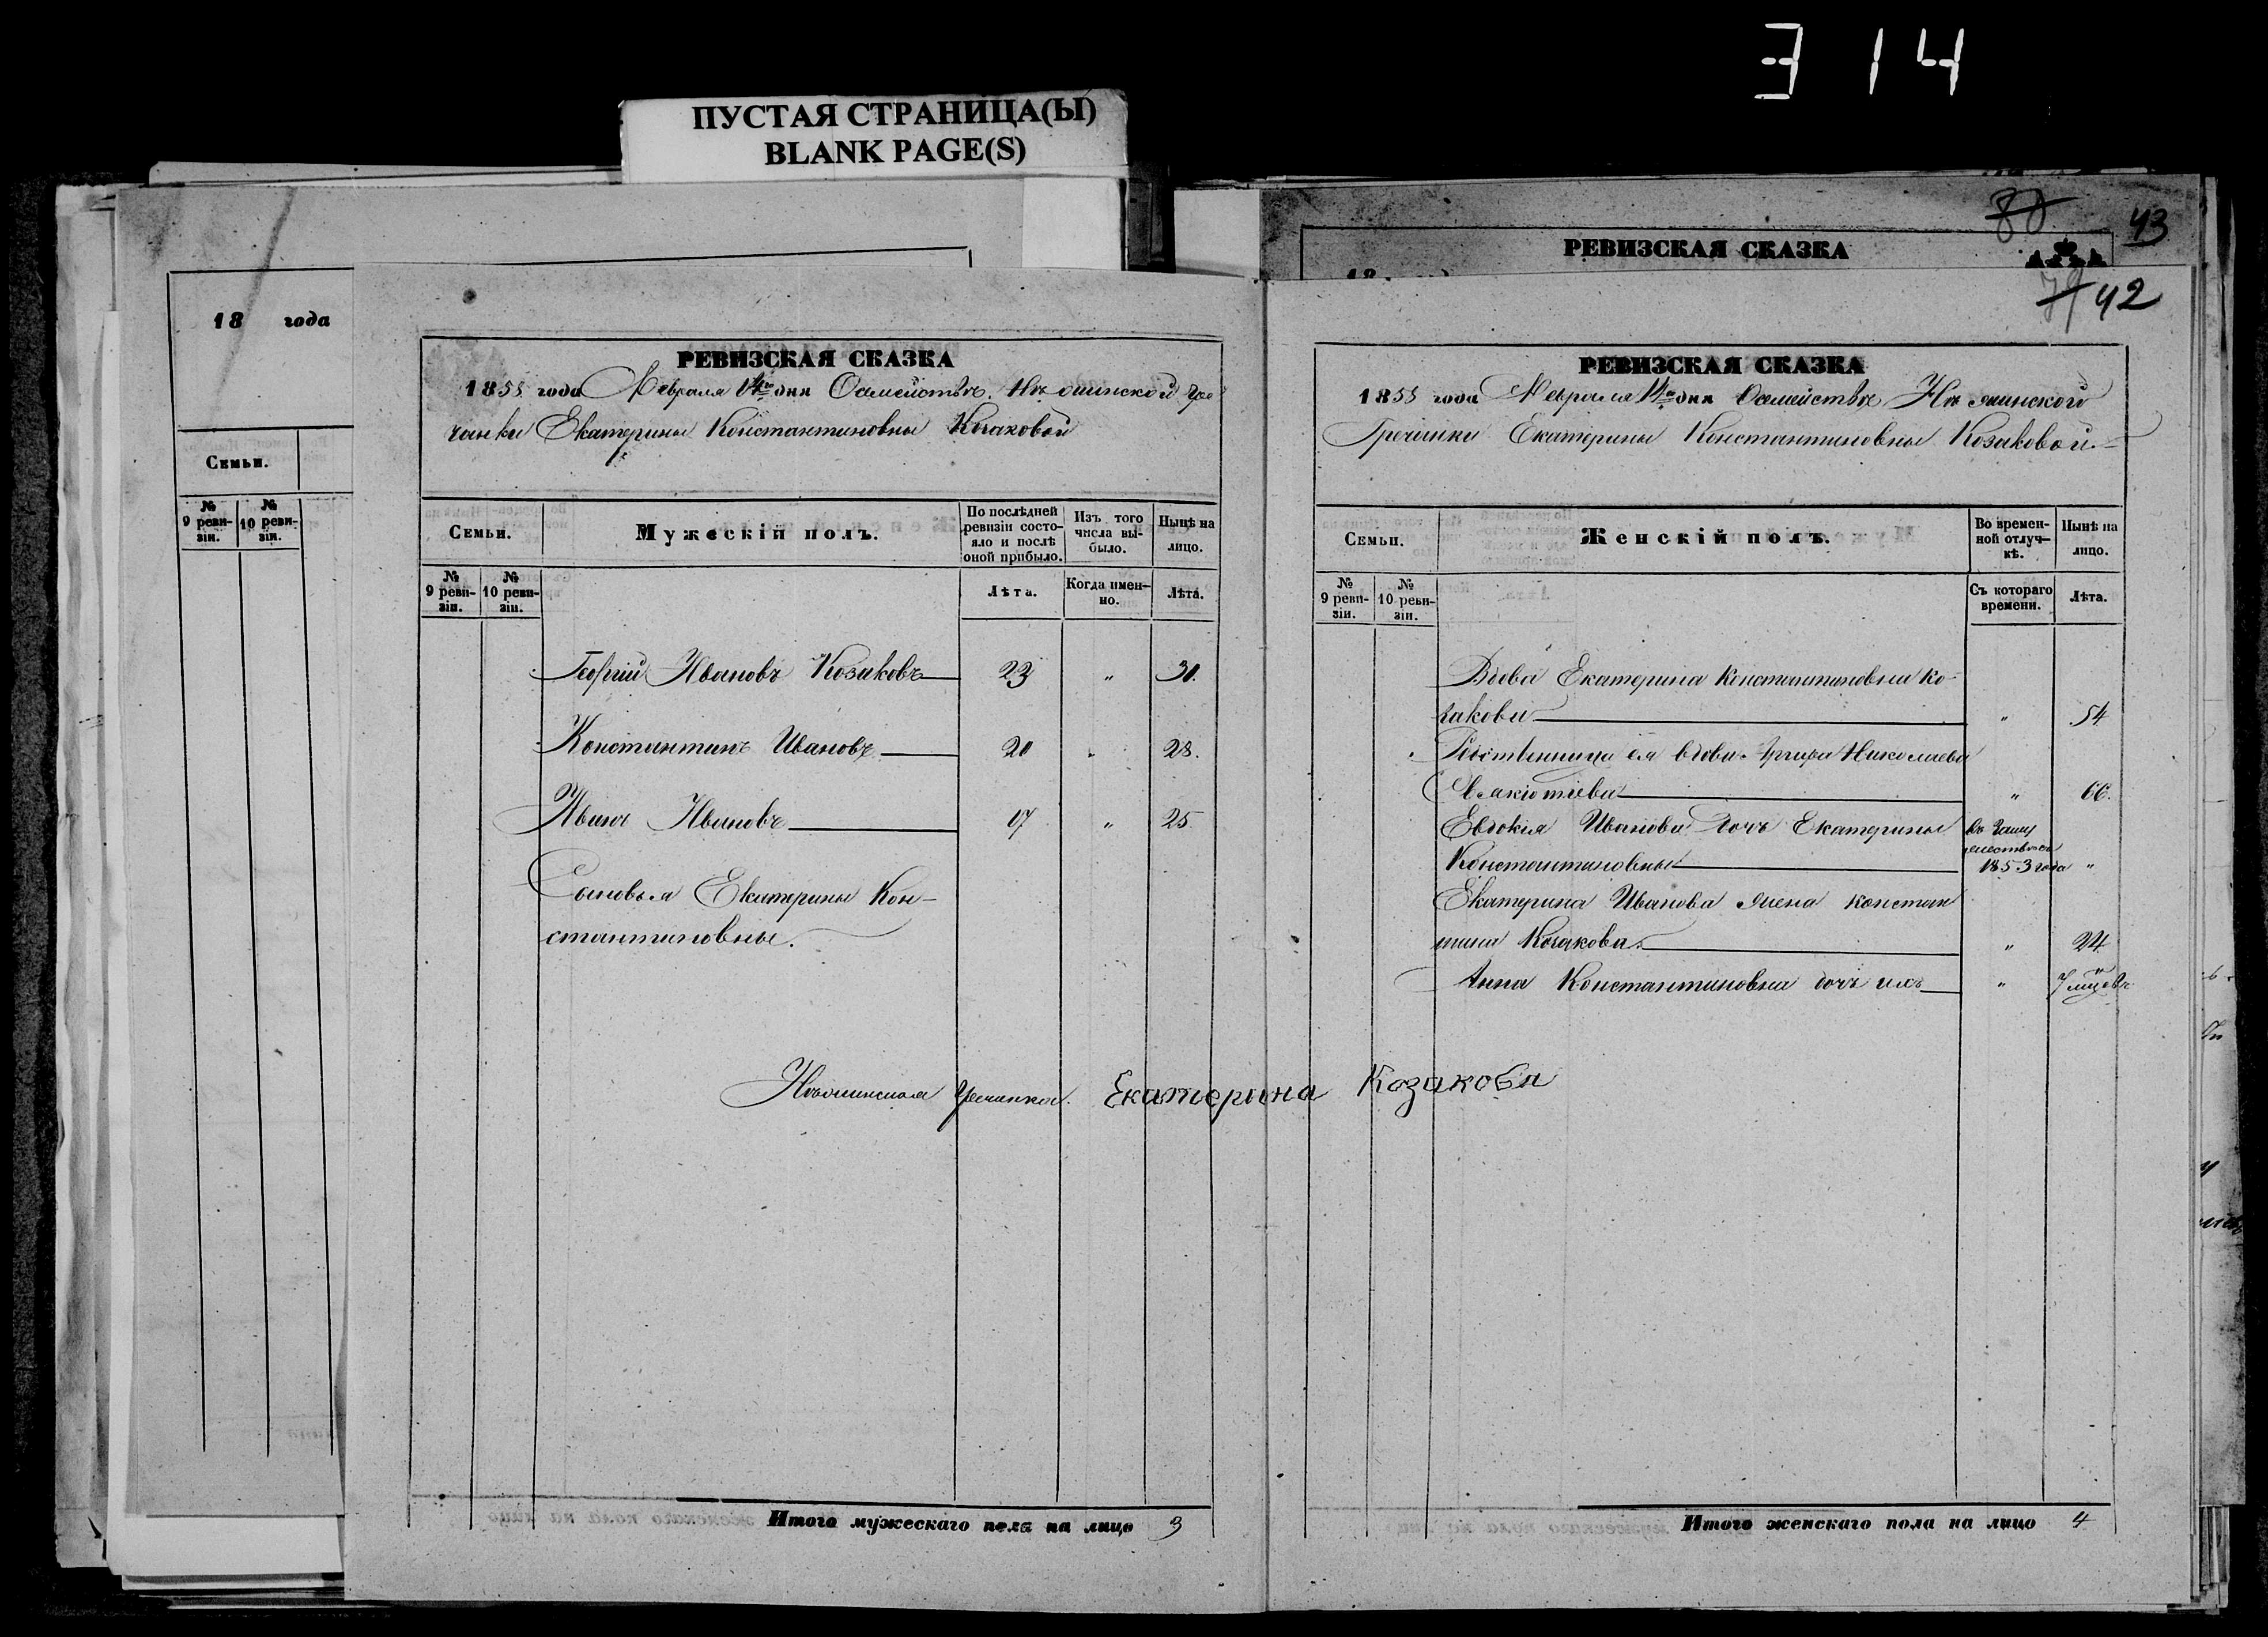 Э 14
ПУСТАЯ СТРАНИЦА(Ы)
BLANK PAGE(S)
18 года
Семьи.
№ 9 реви-зіи.
№ 10 реви-зіи.
РЕВИЗСКАЯ СКАЗКА
1858 года Февраля 14го дня О семействѣ Нѣжинской Гре
чанки Екатерины Константиновны Козаковой
Семьи.
Мужескій полъ.
По послѣдней ревизіи состо-яло и послѣ оной прибыло.
Изъ того числа вы-было.
Нынѣ на лицо.
№ 9 реви-зіи.
№ 10 реви-зіи.
Лѣта.
Когда имен-но.
Лѣта.
Георгій Ивановъ Козаковъ 23 " 31.
Константинъ Ивановъ 20 " 28.
Иванъ Ивановъ 17 " 25.
Сыновья Екатерины Кон-
стантиновны.
Нѣжинская Гречанка Екатерина Козакова
Итого мужескаго пола на лицо 3
80 43
РЕВИЗСКАЯ СКАЗКА
79 42
РЕВИЗСКАЯ СКАЗКА
1858 года Февраля 14го дня О семействѣ Нѣжинской
Гречанки Екатерины Константиновны Козаковой.
Семьи.
Женскій полъ.
Во времен-ной отлуч-кѣ.
Нынѣ на лицо.
№ 9 реви-зіи.
№ 10 реви-зіи.
Съ котораго времени.
Лѣта.
Вдова Екатерина Константиновна Ко-
закова " 54
Родственница ея вдова Николаева
" 66.
Евдокія Иванова дочь Екатерины
Константиновны 1853 года "
Екатерина Иванова жена Констан
тина Козакова. " 24
Анна Константиновна дочь ихъ " 7 мцовъ
Итого женскаго пола на лицо 4